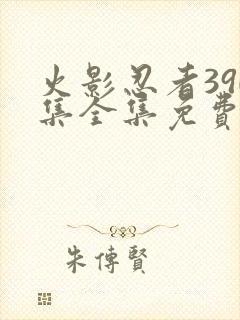 火影忍者39
集全集免費
朱傳賢